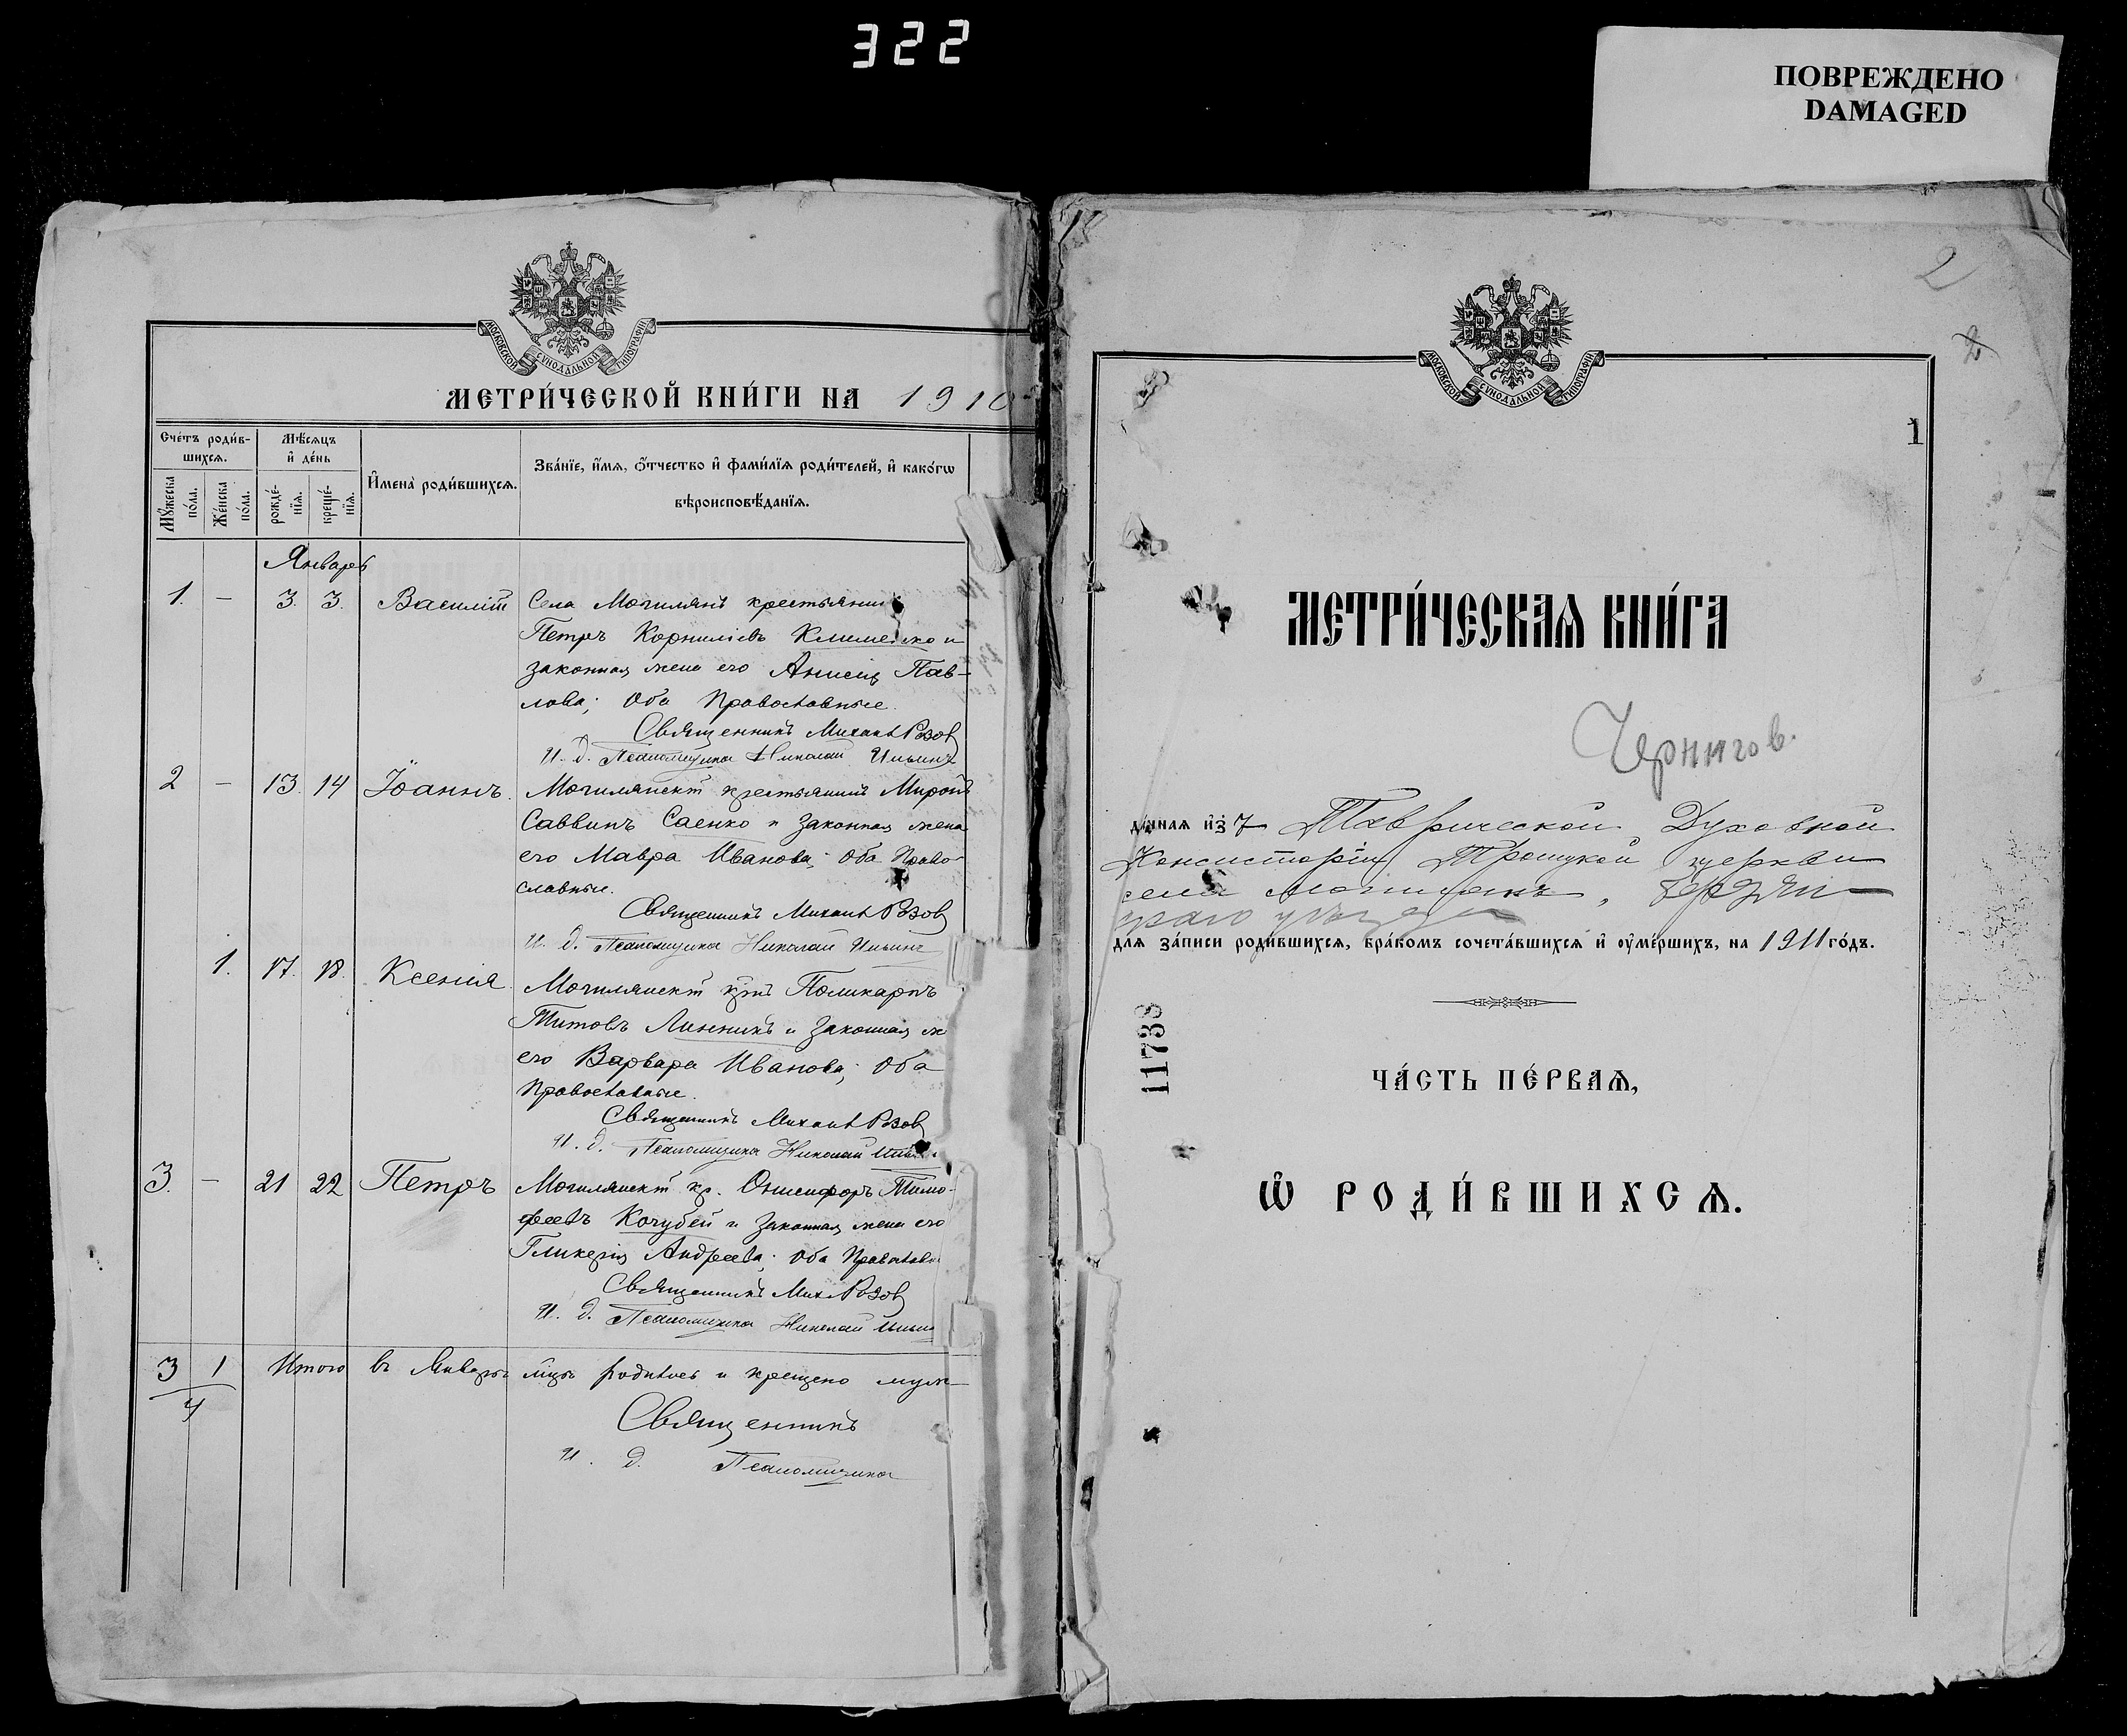 322
ПОВРЕЖДЕНО
DAMAGED
МОСКОВСКОЙ СѴНОДАЛЬНОЙ ТИПОГРАФІИ
МЕТРИ́ЧЕСКОЙ КНИ́ГИ НА 1910
Сче́тъ роди́в-
шихсѧ.
Мѣ́сѧцъ
и҆ де́нь
Мꙋ́жеска
по́ла.
Же́нска
по́ла.
рожде́-
нїѧ.
креще́-
нїѧ.
И҆мена̀ роди́вшихсѧ.
Зва́нїе, и҆́мѧ, ѻ҆́тчество и҆ фами́лїѧ роди́телей, и҆ како́гѡ
вѣроисповѣ́данїѧ.
Январь
1. – 3. 3. Василій Села Могилянъ крестьянинъ
Петръ Корниліевъ Клименко и
законная жена его Анисія Пав-
лова; оба Православные.
Священникъ Михаилъ Розов
И. д. Псаломщика Николай Ильинъ
2 – 13. 14 Іоаннъ. Могилянскій крестьянинъ Миронъ
Саввинъ Саенко и законная жена
его Мавра Иванова; оба Право-
славные.
Священникъ Михаилъ Розов
И. д. Псаломщика Николай Ильинъ
1. 17. 18. Ксенія Могилянскій кр–нъ Поликарпъ
Титовъ Линникъ и законная ж
его Варвара Иванова; оба
Православные.
Священникъ Михаилъ Розов
И. д. Псаломщика Николай Ильи
3. – 21 22 Петръ Могилянскій кр. Онисифоръ Тимо-
феевъ Кочубей и законная жена его
Гликерія Андреева; оба Православн
Священникъ Мих. Розов
И. д. Псаломщика Николай Ильин
3 1 Итого въ Январѣ м–цѣ родилось и крещено муж–
4
Священникъ
И. д. Псаломщика
2
2
МОСКОВСКОЙ СѴНОДАЛЬНОЙ ТИПОГРАФІИ
1
МЕТРИ́ЧЕСКАѦ КНИ́ГА
Чернигов.
да́ннаѧ и҆з̾ Таврической Духовной
Консисторіи Троицкой церкви
села Могилянъ, Бердян-
скаго уѣзда
длѧ за́писи роди́вшихсѧ, бра́комъ сочета́вшихсѧ и҆ ᲂу҆ме́ршихъ, на 1911 го́дъ.
11733
ЧА́СТЬ ПЕ́РВАѦ,
Ѽ РОДИ́ВШИХСѦ.